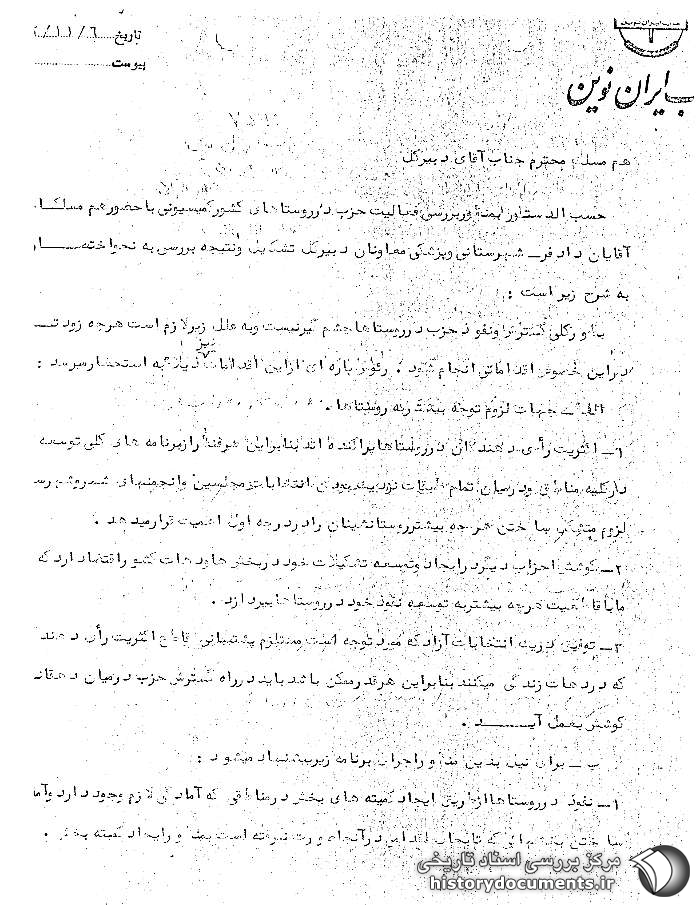 حزب ایران نوین
تاریخ
پیوست
هم مسلک محترم جناب آقای دبیرکل
حسب الدستور بمنظور بررسی فعالیت حزب در روستاهای کشور کمیسیونی با حضور هم مسلکان
آقایان دادفر شهرستانی و پزشکی معاونان دبیرکل تشکیل و نتیجه بررسی به نحو اختصار
به شرح زیر است :
بطور کلی گسترش و نفوذ حزب در روستاها چشم گیر نیست و به علل زیر لازم است هرچه زودتر
در این خصوص اقداماتی انجام شود . رئوس پاره ای از این اقدامات نیز ذیلا به استحضار میرسد :
الف ـ جهات لزوم توجه بیشتر به روستاها .
۱ـ اکثریت رأی دهندگان در روستاها پراکنده اند بنابراین هدف از برنامه های کلی توسعه
در کلیه مناطق و در میان تمام طبقات انتخابات مجلسین و انجمنهای شهر و
لزوم متشکل ساختن هر چه بیشتر روستانشینان را در درجه اول اهمیت قرار میدهد .
۲ـ کوشش احزاب دیگر در ایجاد و توسعه تشکیلات خود در بخش ها و دهات کشور اقتضا دارد که
ما با قاطعیت هرچه بیشتر به توسعه نفوذ خود در روستاها بپردازد .
۳ـ توفیق در انتخابات آزاد که مورد توجه است مستلزم پشتیبانی قاطع اکثریت رأی دهندگان
که در دهات زندگی میکنند بنابراین هر قدر ممکن باشد باید در راه گسترش حزب در میان دهقانان
کوشش بعمل آیــــد .
ب ـ برای نیل بدین منظور اجرای برنامه زیر پیشنهاد میشود :
۱ـ نفوذ در روستاها از طریق ایجاد کمیته های بخش در مناطقی که آمادگی لازم وجود دارد و آماده
ساختن بخشهائی که تابحال اقدامی در آنجا صورت نگرفته است بمنظور ایجاد کمیته بخش .
مرکز بررسی اسناد تاریخی
historydocuments.ir